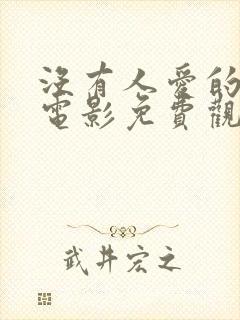 沒有人愛的
電影免費觀
武井宏之